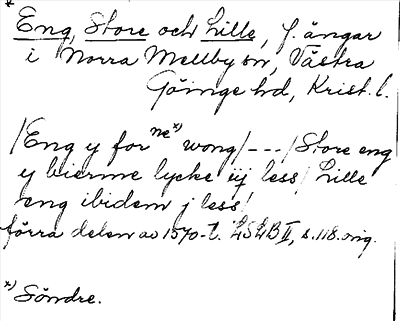 *
Eng, Store och Lille, f. ängar
i Norra Mellby sn, Västra
Göinge hd, Krist. l.
/Eng y for ne*) wong/---/Store eng
y bierme lycke iij less/ Lille
eng ibidem j less/
förra delen av 1570-t. LSLB II, s. 118. orig.
*) Söndre.